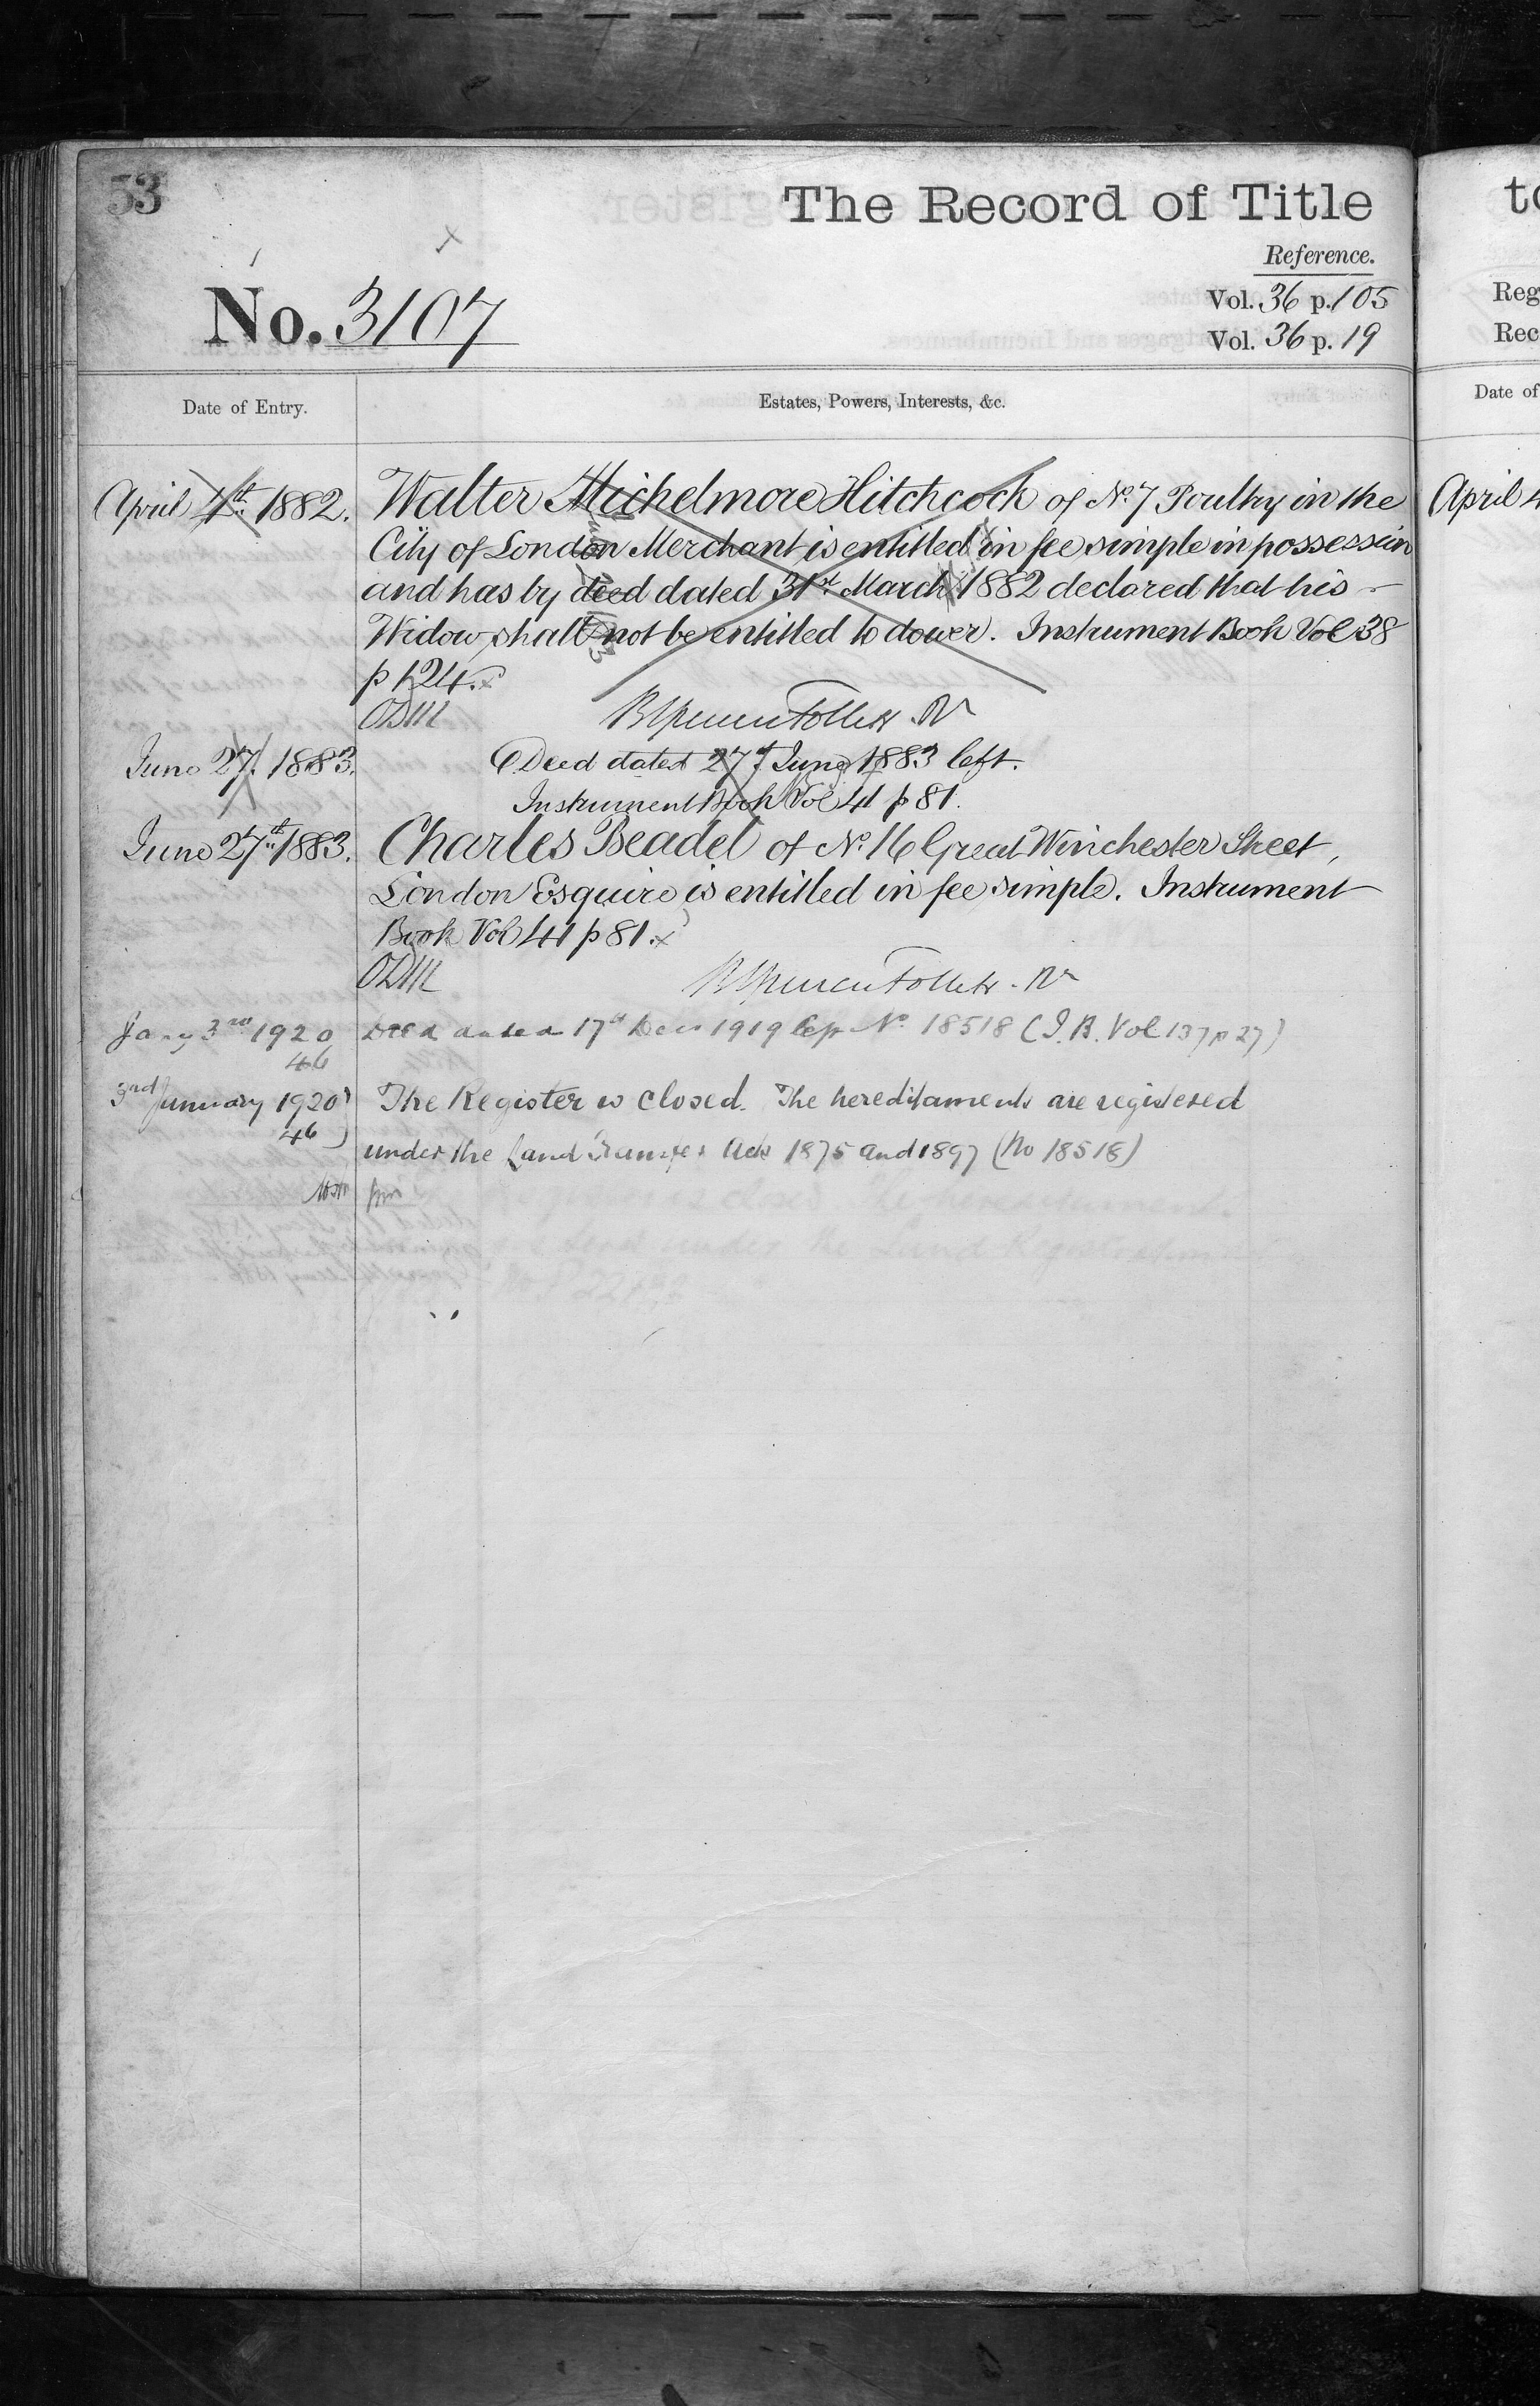 53
The Record of Title
Reference.
No. 3107
Vol. 36 p. 105
Vol. 36 p. 19
Date of Entry.
Estates, Powers, Interests, &c.
April 4th 1882.
Walter Michelmore Hitchcock of No. 7 Poultry in the
City of London Merchant is entitled in fee simple in possession
and has by deed dated 31st March 1882 declared that his
Widow shall not be entitled to dower. Instrument Book Vol 38
p 124.
ODM
June 27. 1883.
Deed dated 27th June 1883 left.
Instrument Book Vol 41 p 81.
June 27th 1883.
Charles Beadel of No. 16 Great Winchester Street,
London Esquire is entitled in fee simple. Instrument
Book Vol 41 p 81.
ODM
Jany 3rd 1920
46
Deed dated 17th Decr 1919 No. 18518 (I.B. Vol 137 p 27)
3rd January 1920
46
The Register is closed. The hereditaments are registered
under the Land Transfer Acts 1875 and 1897 (No 18518)
to
Reg
Rec
Date of
April 4